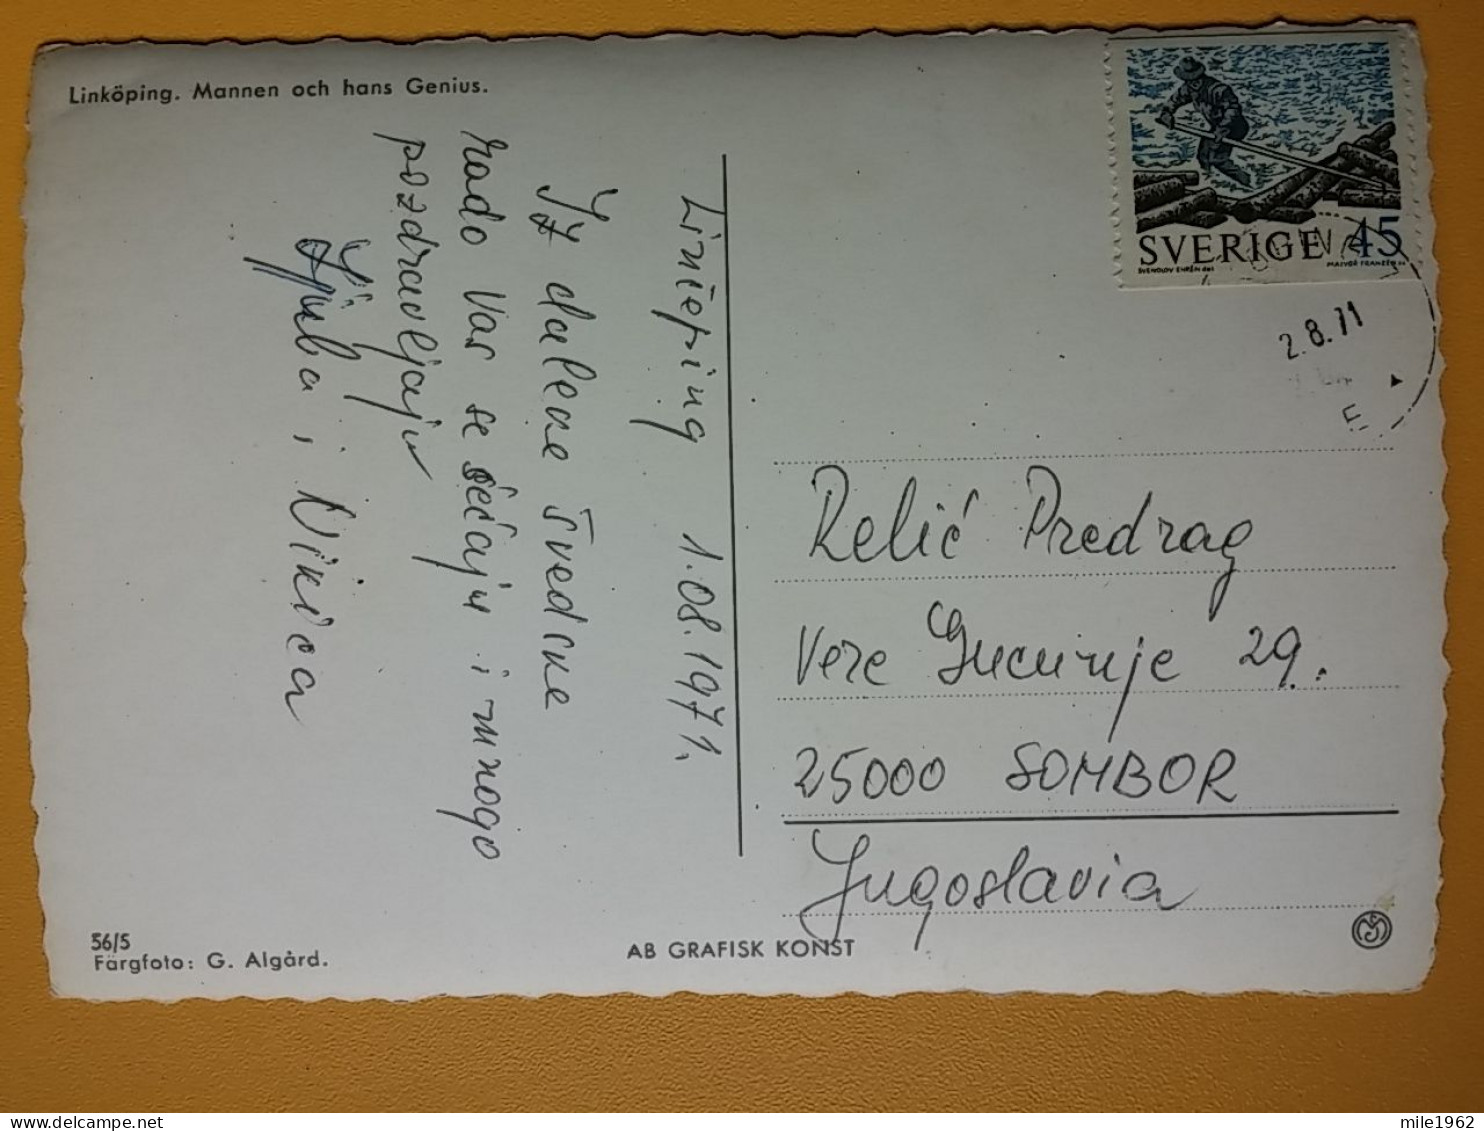 Linköping. Mannen och hans Genius.
Linčeping 1.08.1971.
Iz daleke švedske
rado Vas se sećaju i mnogo
pozdravljaju
Ljuba i Nikica
SVERIGE 45
SVENOLOV EHRÉN del.
MAJVOR FRANZÉN sc.
2.8.71
Relić Predrag
Vere Gucunje 29.
25000 SOMBOR
Jugoslavia
56/5
Färgfoto: G. Algård.
AB GRAFISK KONST
mile1962